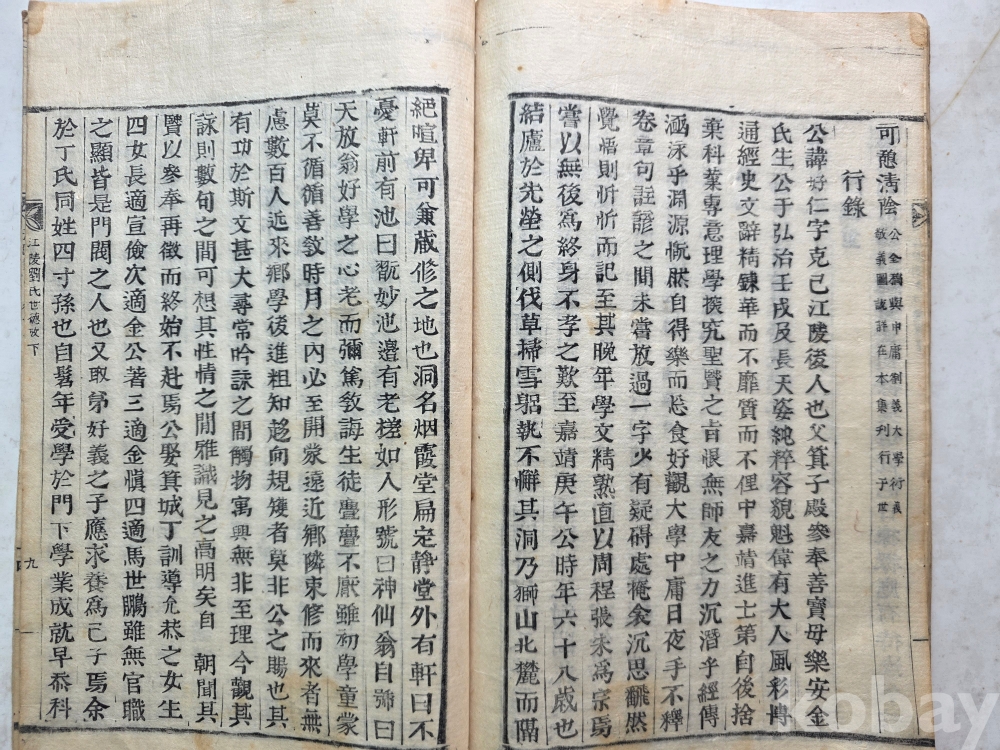 可憩清陰
公全稿與中庸劄義大學衍義
敬義圖說詳在本集刊行于世
行錄
公諱好仁字克己江陵後人也父箕子殿參奉善寶母樂安金
氏生公于弘治壬戌及長天姿純粹容貌魁偉有大人風彩博
通經史文辭精鍊華而不靡質而不俚中嘉靖進士第自後捨
棄科業專意理學探究聖贒之旨恨無師友之力沉潛乎經傳
涵泳乎淵源慨然自得樂而忘食好觀大學中庸日夜手不釋
卷章句註諺之間未嘗放過一字少有疑碍處掩衾沉思飜然
覺悟則忻忻而記至其晚年學文精熟直以周程張朱爲宗焉
嘗以無後爲終身不孝之歎至嘉靖庚午公時年六十八歲也
結廬於先塋之側伐草掃雪躬執不懈其洞乃獅山北麓而隔
絕喧卑可兼葳修之地也洞名烟霞堂扁定靜堂外有軒曰不
憂軒前有池曰翫妙池邉有老槎如人形號曰神仙翁自號曰
天放翁好學之心老而彌篤敎誨生徒亹亹不厭雖初學童蒙
莫不循循善敎時月之內必至開蒙遠近鄉隣束修而來者無
慮數百人近來鄉學後進粗知趍向規矱者莫非公之賜也其
有功於斯文甚大尋常吟詠之間觸物寓興無非至理今觀其
詠則數句之間可想其性情之閒雅識見之高明矣自 朝聞其
贒以參奉再徵而終始不赴焉公娶箕城丁訓導允恭之女生
四女長適宣儉次適金公著三適金愼四適馬世鵬雖無官職
之顯皆是門閥之人也又取弟好義之子應求養爲己子焉余
於丁氏同姓四寸孫也自髫年受學於門下學業成就早忝科
江陵劉氏世德攷下
九
kobay